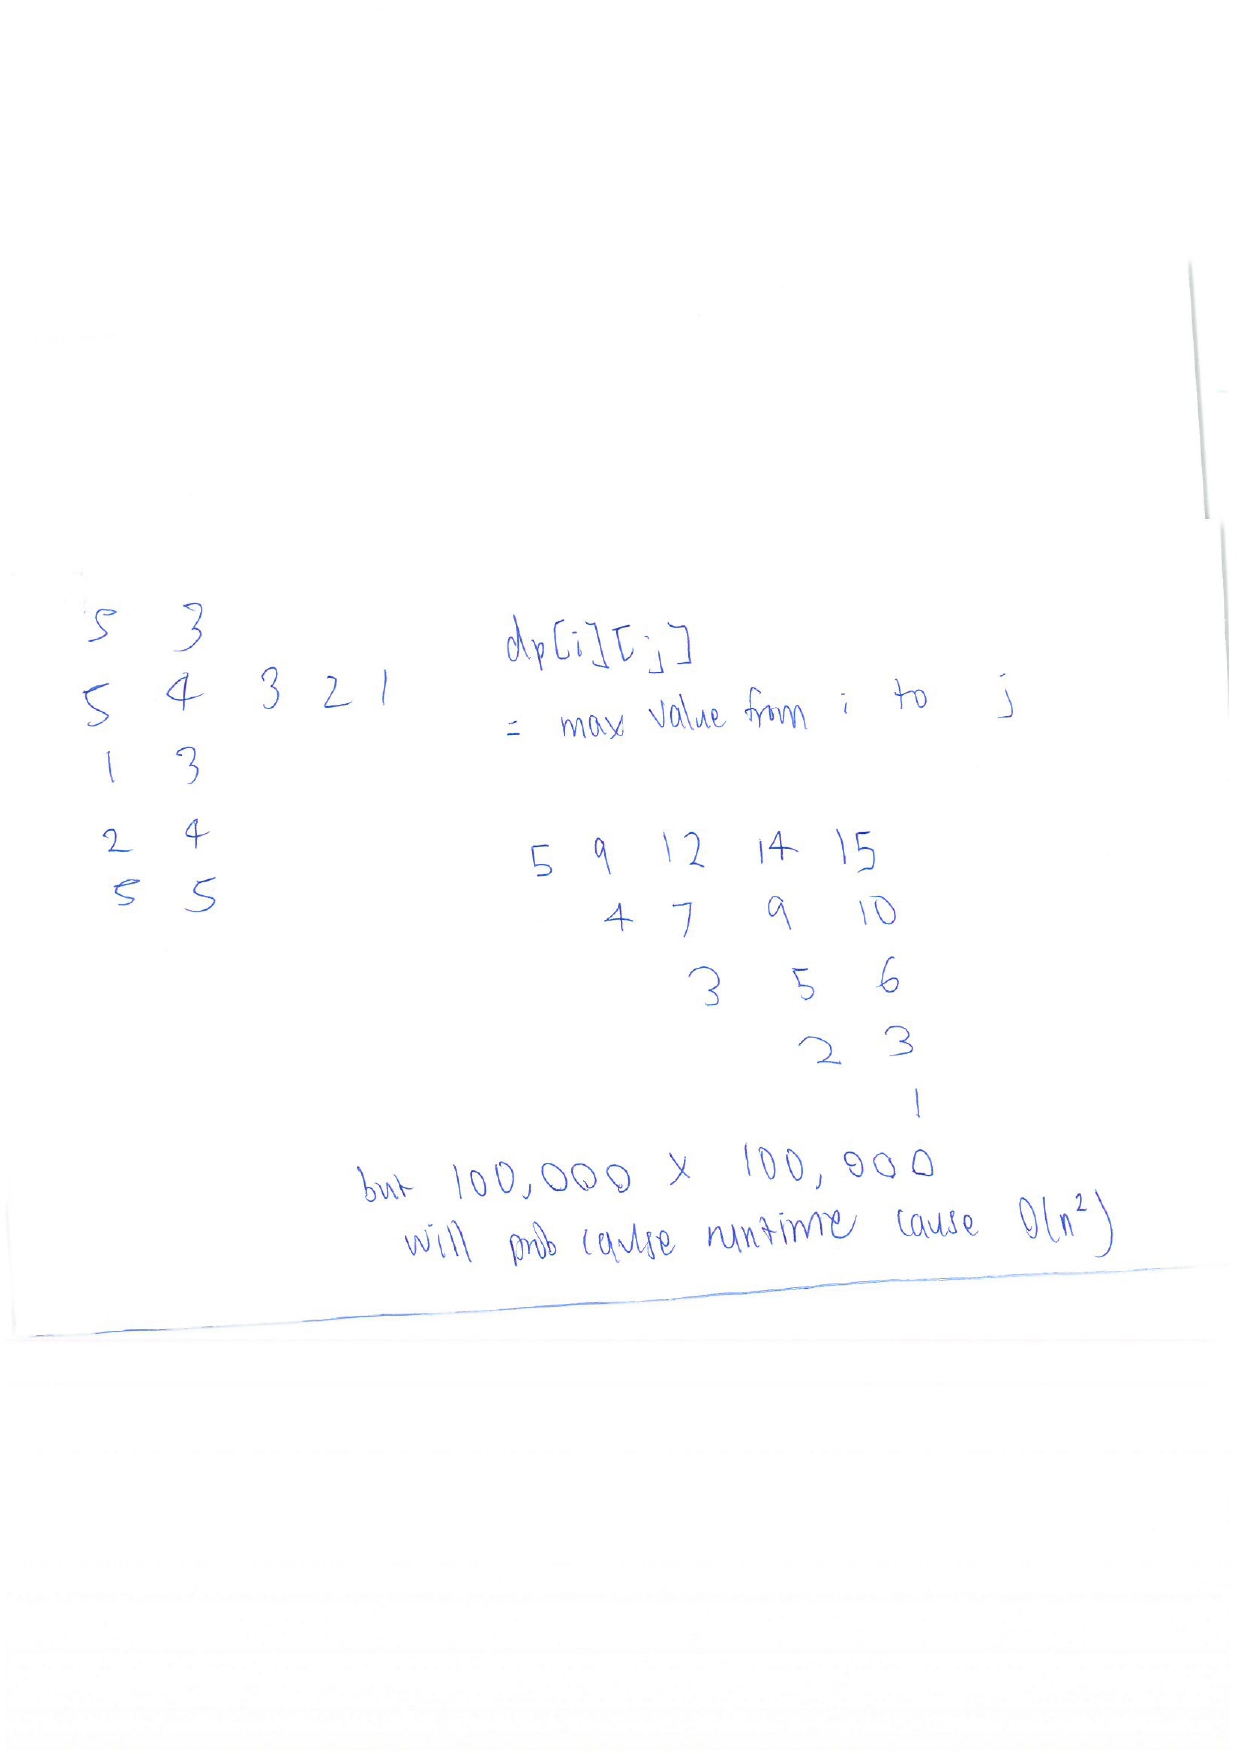 5 3
5 4 3 2 1
1 3
2 4
5 5
dp[i][j]
= max value from i to j
5 9 12 14 15
4 7 9 10
3 5 6
2 3
1
but 100,000 x 100,000
will prob cause runtime cause O(n²)